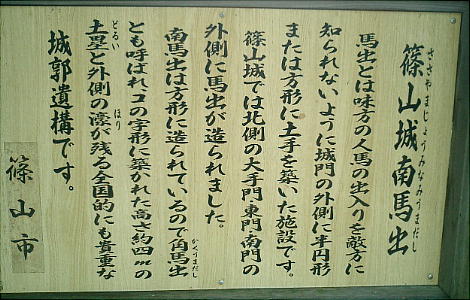 ささやまじょうみなみうまだし
篠山城南馬出
馬出とは味方の人馬の出入りを敵方に
知られないように城門の外側に半円形
または方形に土手を築いた施設です。
篠山城では北側の大手門・東門・南門の
外側に馬出が造られました。
南馬出は方形に造られているので角馬出
かくうまだし
とも呼ばれコの字形に築かれた高さ約四mの
土塁と外側の濠が残る全国的にも貴重な
どるい
ほり
城郭遺構です。
篠山市